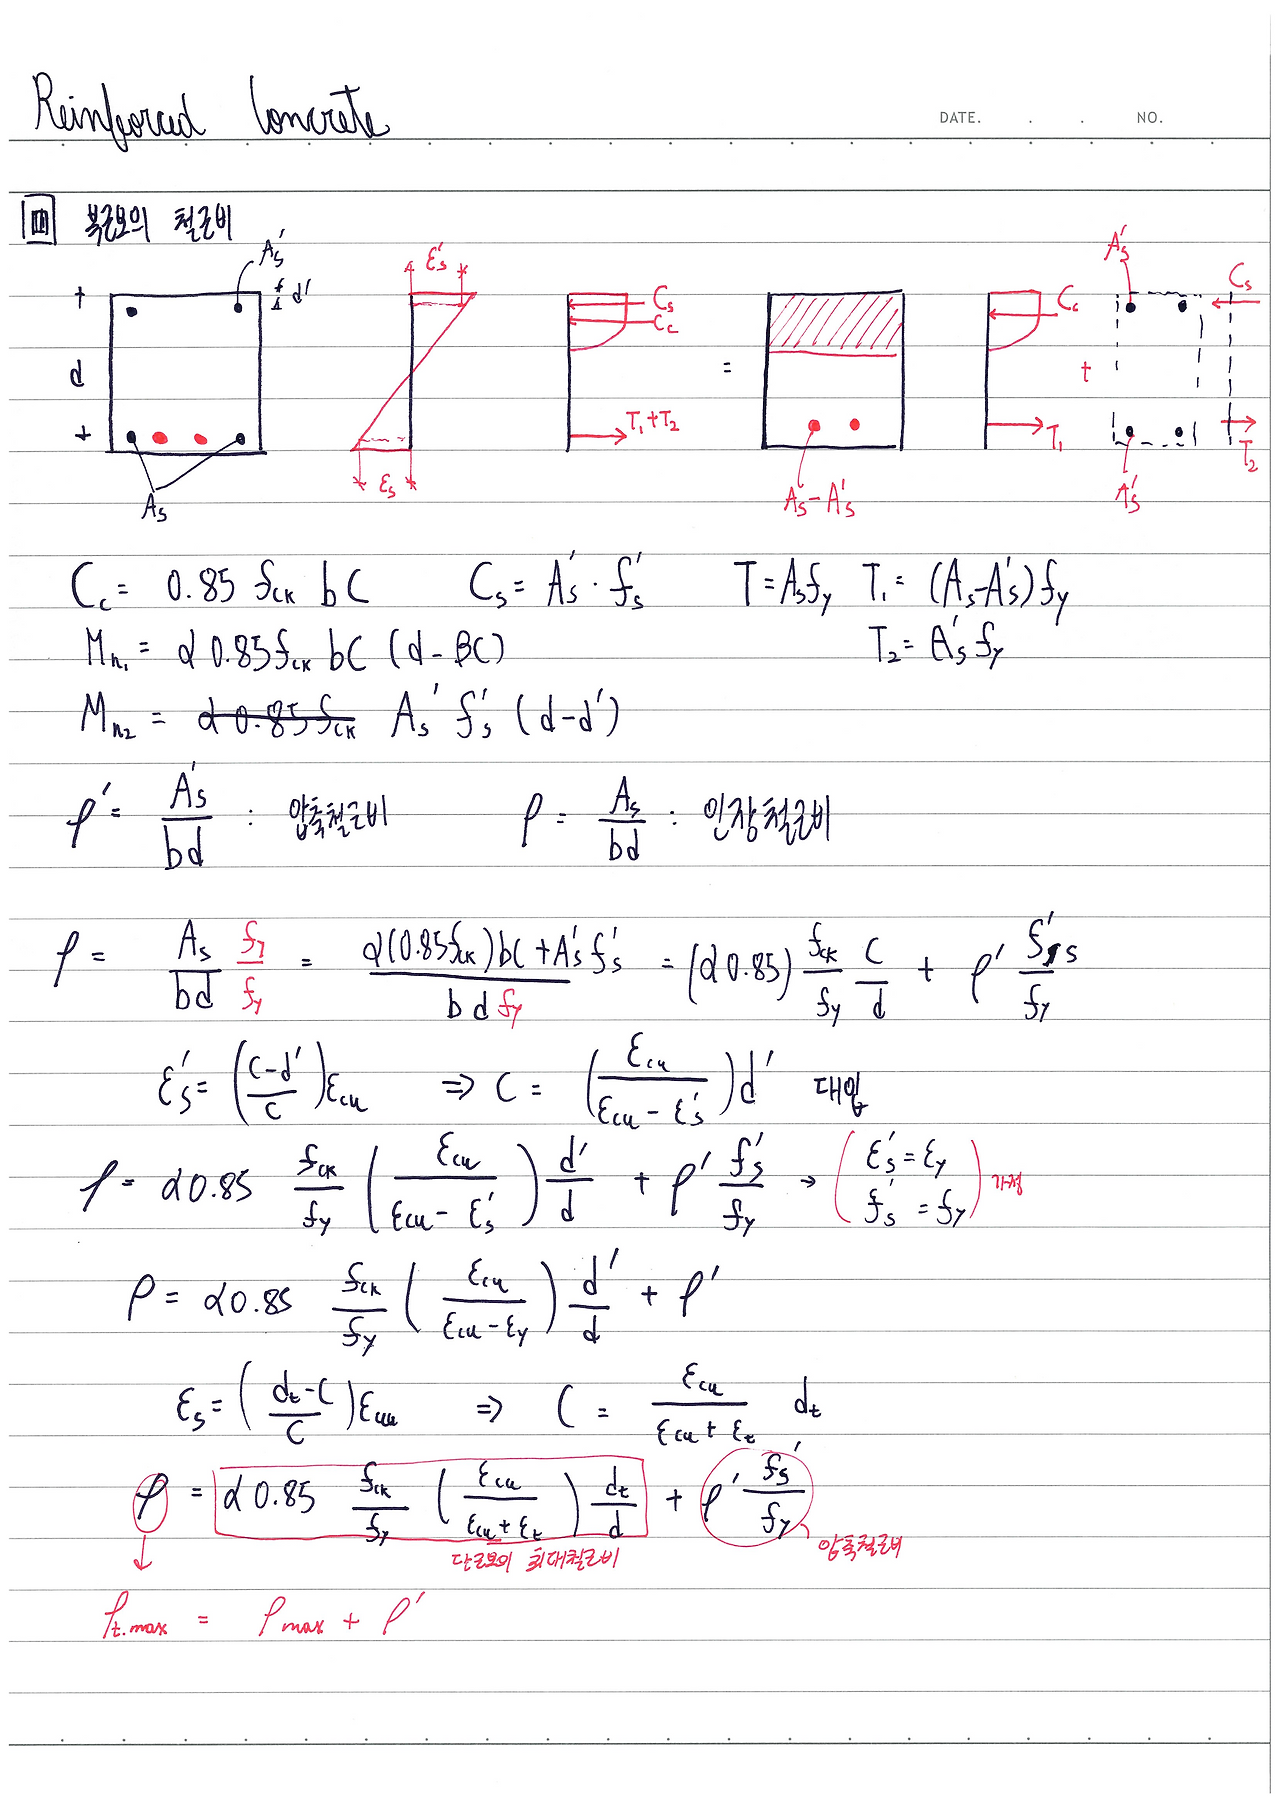 Reinforced Concrete
DATE. . . NO.
복근보의 철근비
As' d' d As
εs' εs
Cs Cc T₁+T₂
=
As-As'
Cc T₁
+
As' Cs T₂ As'
Cc = 0.85 fck bC Cs = As' · fs' T = Asfy T₁ = (As-As')fy
Mn₁ = α 0.85fck bC (d-βC) T₂ = As' fy
Mn₂ = α 0.85 fck As' fs' (d-d')
ρ' = As'/bd : 압축철근비 ρ = As/bd : 인장철근비
ρ = As/bd fy/fy = α(0.85fck)bC + As'fs' / bd fy = (α0.85) fck/fy C/d + ρ' fs'/fy
εs' = (C-d'/C)εcu ⇒ C = (εcu/εcu-εs')d' 대입
ρ = α0.85 fck/fy (εcu/εcu-εs') d'/d + ρ' fs'/fy → (εs'=εy fs'=fy) 가정
ρ = α0.85 fck/fy (εcu/εcu-εy) d'/d + ρ'
εs = (dt-C/C)εcu ⇒ C = εcu/εcu+εt dt
ρ = α0.85 fck/fy (εcu/εcu+εt) dt/d + ρ' fs'/fy
단근보의 최대철근비 압축철근비
ρt.max = ρmax + ρ'